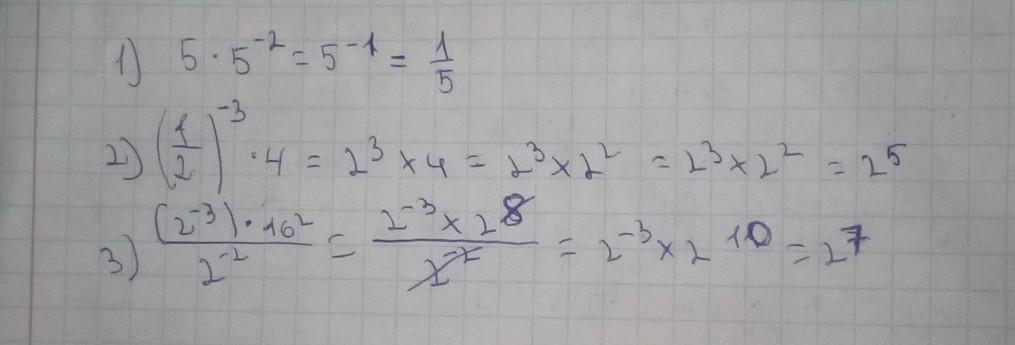 1) 5 · 5⁻² = 5⁻¹ = 1/5
2) (1/2)⁻³ · 4 = 2³ × 4 = 2³ × 2² = 2³ × 2² = 2⁵
3) (2⁻³) · 16² / 2⁻² = 2⁻³ × 2⁸ / 2⁻² = 2⁻³ × 2¹⁰ = 2⁷